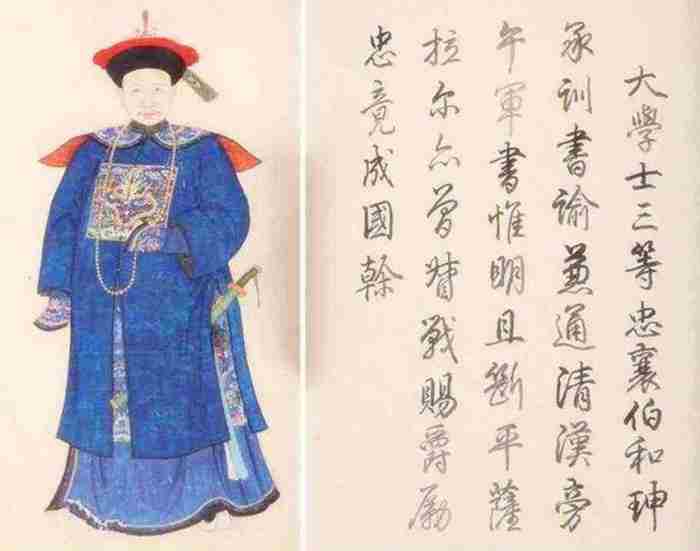 大學士三等忠襄伯和珅
承訓書諭兼通清漢旁
午軍書惟明且斷平薩
拉尔亦曾督戰賜爵勵
忠竟成國榦